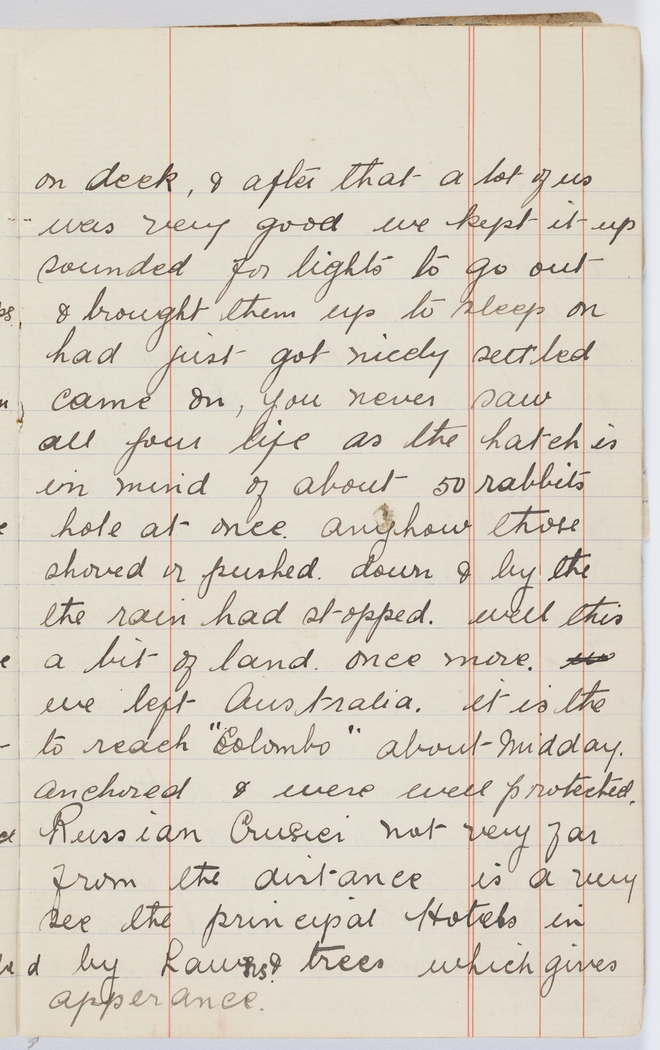 on deck, & after that a lot of us
was very good we kept it up
sounded for lights to go out
& brought them up to sleep on
had just got nicely settled
came on, you never saw
all your life as the hatch is
in mind of about 50 rabbits
hole at once. anyhow those
shoved or pushed. down & by the
the rain had stopped. well this
a bit of land. once more.
we left Australia. it is the
to reach "Colombo" about Midday.
anchored & were well protected.
Russian Crusier not very far
from the distance is a very
see the principal Hotels in
d by Lawns & trees which gives
apperance.